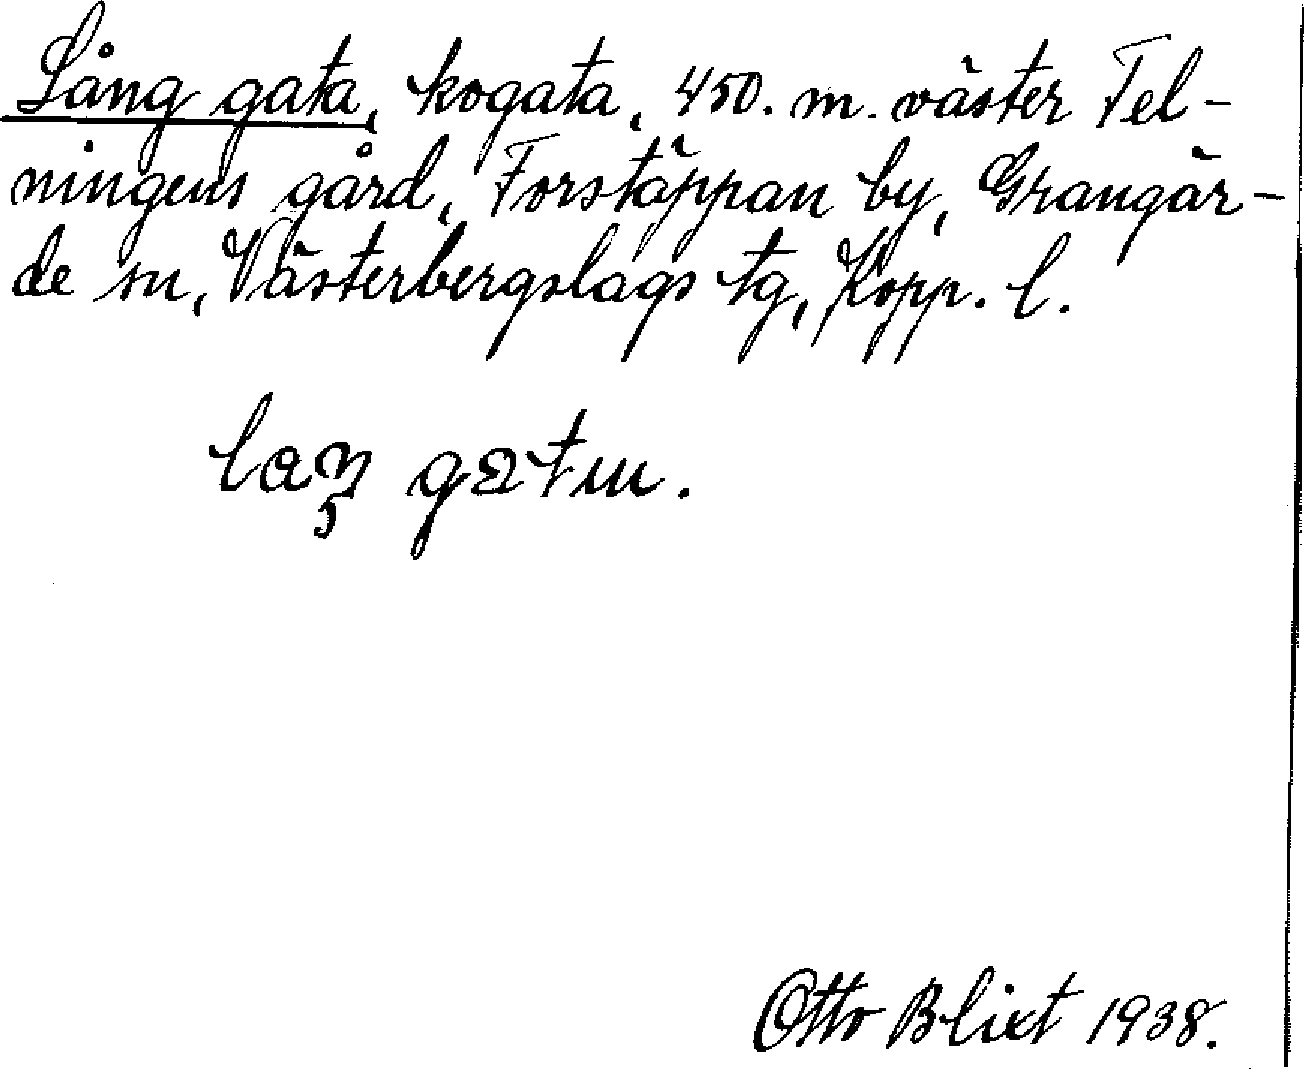 Lång gata, kogata, 450. m. väster Fel-
ningens gård, Forstäppan by, Grangär-
de sn, Västerbergslags tg, Kopp. l.
Otto Blixt 1938.